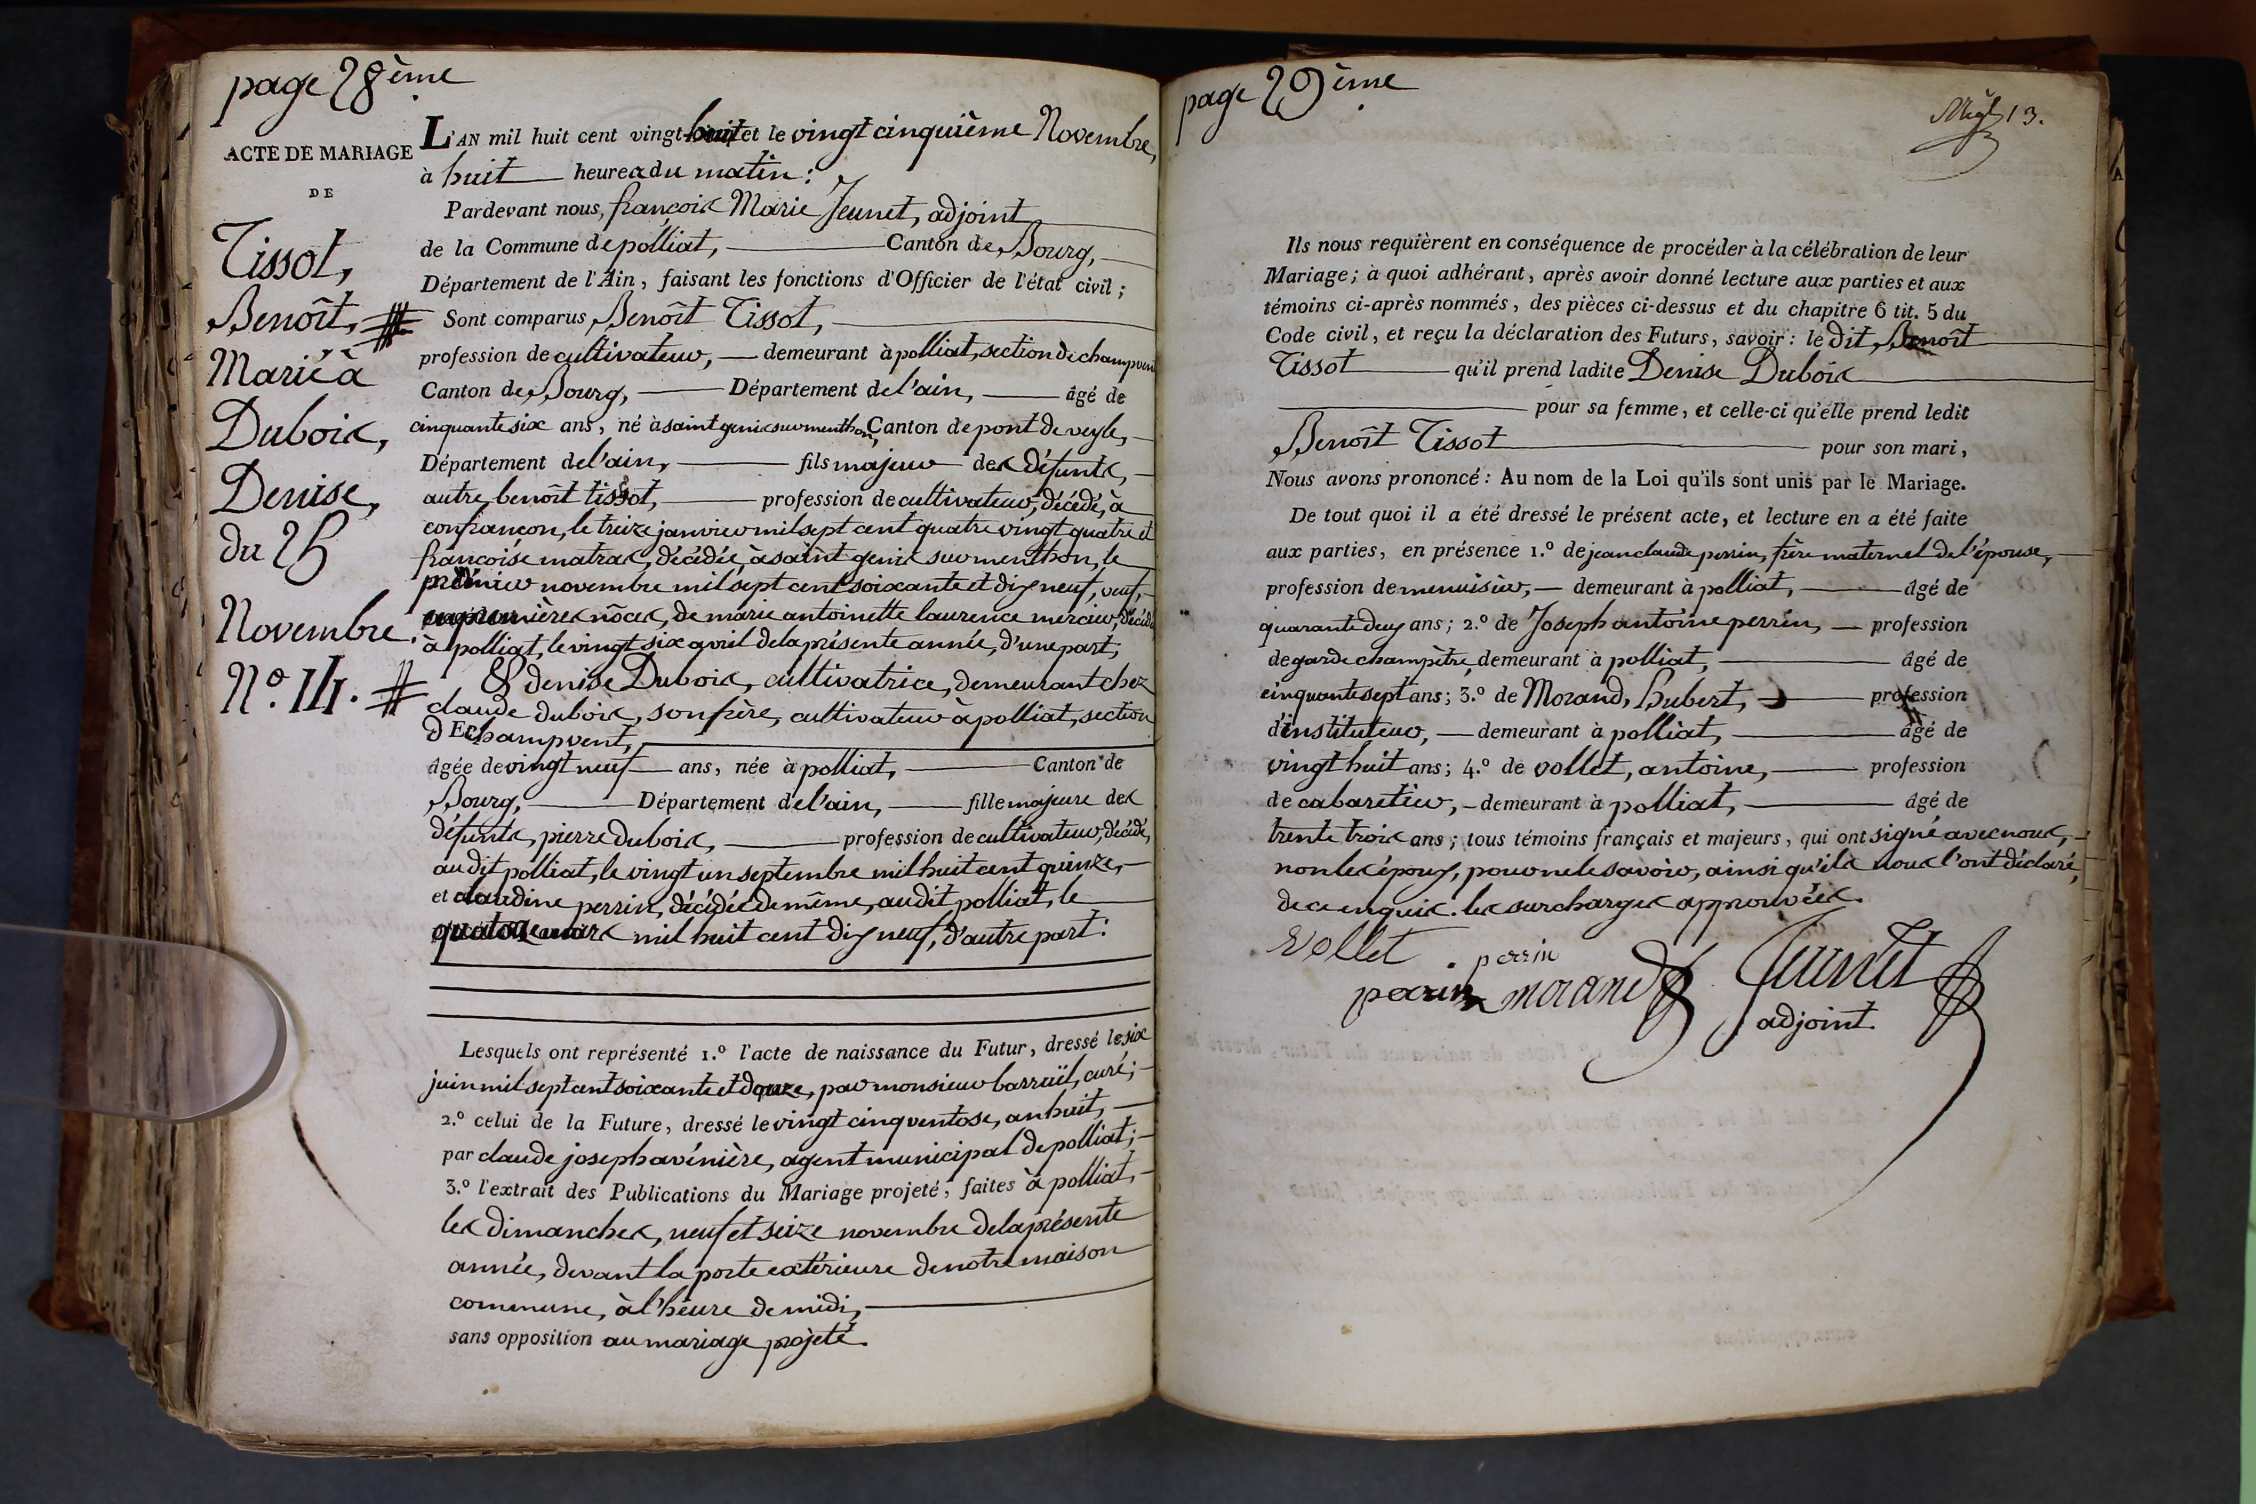 page 28ème
ACTE DE MARIAGE
DE
Tissot,
Benoît,
Marié à
Dubois,
Denise,
du 25
Novembre.
N.º 14.
L'AN mil huit cent vingt huit et le vingt cinquième Novembre,
à huit heures du matin:
Pardevant nous, françois Marie Jeunet, adjoint
de la Commune de polliat, Canton de Bourg,
Département de l'Ain, faisant les fonctions d'Officier de l'état civil;
Sont comparus, Benoît Tissot,
profession de cultivateur, demeurant à polliat, section dechampvent
Canton de Bourg, Département de l'ain, âgé de
cinquante six ans, né à saint genis sur menthon, Canton de pont de veyle,
Département de l'ain, fils majeur des défunts,
autre benoît tissot, profession de cultivateur, décédé, à
confrançon, le treize janvier mil sept cent quatre vingt quatre et
françoise matras, décédée, à saint genis sur menthon, le
premier novembre mil sept cent soixante et dix neuf, veuf,
en premières nôces, de marie antoinette laurence mercier, décédée
à polliat, le vingt six avril de la présente année, d'une part;
& denise Dubois, cultivatrice, demeurant chez
claude dubois, son frère, cultivateur à polliat, section
d'Echampvent,
âgée de vingt neuf ans, née à polliat, Canton de
Bourg, Département de l'ain, fille majeure des
défunts, pierre dubois, profession de cultivateur, décédé,
audit polliat, le vingt un septembre mil huit cent quinze,
et claudine perrin, décédée de même, audit polliat, le
quatorze mars mil huit cent dix neuf, d'autre part:
Lesquels ont représenté 1.º l'acte de naissance du Futur, dressé le six
juin mil sept cent soixante et douze, par monsieur barruil, curé;
2.º celui de la Future, dressé le vingt cinq ventose, an huit,
par claude joseph avinière, agent municipal de polliat;
3.º l'extrait des Publications du Mariage projeté, faites à polliat,
les dimanches, neuf et seize novembre de la présente
année, devant la porte extérieure de notre maison
commune, à l'heure de midi,
sans opposition au mariage projeté.
page 29ème
13.
Ils nous requièrent en conséquence de procéder à la célébration de leur
Mariage; à quoi adhérant, après avoir donné lecture aux parties et aux
témoins ci-après nommés, des pièces ci-dessus et du chapitre 6 tit. 5 du
Code civil, et reçu la déclaration des Futurs, savoir: le dit, Benoît
Tissot qu'il prend ladite Denise Dubois
pour sa femme, et celle-ci qu'elle prend ledit
Benoît Tissot pour son mari,
Nous avons prononcé: Au nom de la Loi qu'ils sont unis par le Mariage.
De tout quoi il a été dressé le présent acte, et lecture en a été faite
aux parties, en présence 1.º de jean claude perrin, frère maternel de l'épouse,
profession de menuisier, demeurant à polliat, âgé de
quarante deux ans; 2.º de Joseph antoine perrin, profession
de garde champêtre, demeurant à polliat, âgé de
cinquante sept ans; 3.º de Morand, hubert, profession
d'instituteur, demeurant à polliat, âgé de
vingt huit ans; 4.º de vollet, antoine, profession
de cabaretier, demeurant à polliat, âgé de
trente trois ans; tous témoins français et majeurs, qui ont signé avec nous,
non les époux, pour ne le savoir, ainsi qu'ils nous l'ont déclaré,
de ce enquis. les surcharges approuvées.
Vollet perrin
perrin morand Jeunet
adjoint